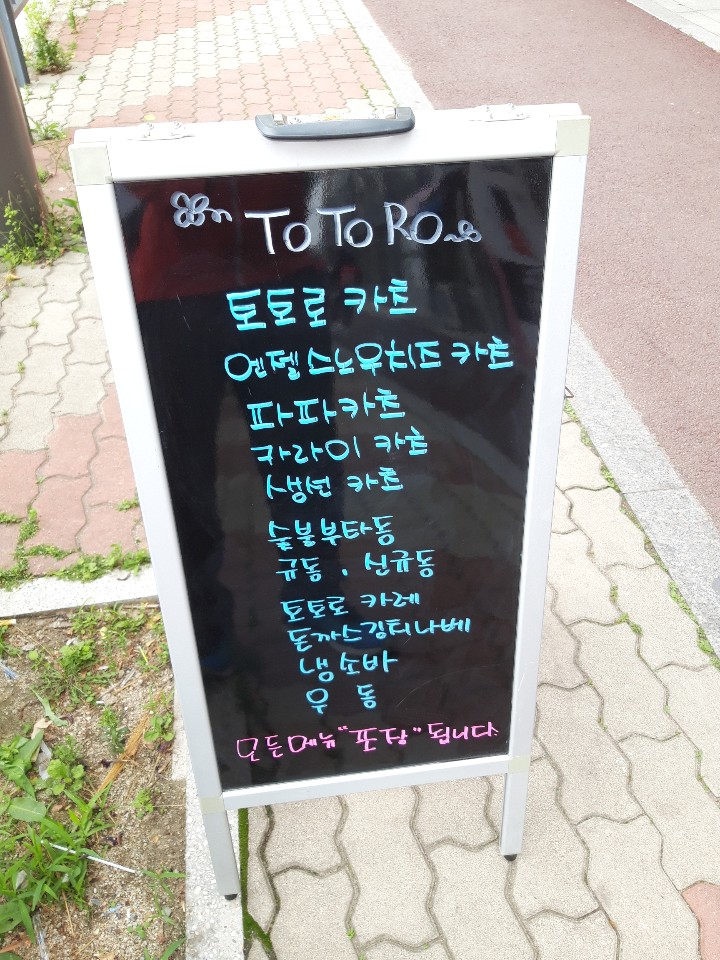 TOTORO
토토로 카츠
엔젤스노우치즈 카츠
파파카츠
카라이 카츠
생선 카츠
숯불부타동
규동 · 신규동
토토로 카레
돈까스김치나베
냉소바
우 동
모든메뉴 "포장" 됩니다